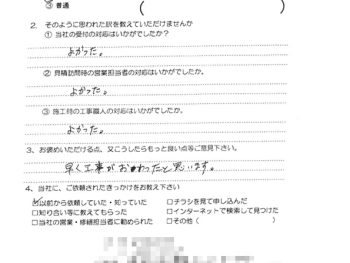 ③ 普通 (
2. そのように思われた訳を教えていただけませんか
① 当社の受付の対応はいかがでしたか？
よかった。
② 見積訪問時の営業担当者の対応はいかがでしたか。
よかった。
③ 施工時の工事職人の対応はいかがでしたか。
よかった。
3、お褒めいただける点、又こうしたらもっと良い点等ご意見下さい。
早く工事がおわったと思います。
4、当社に、ご依頼されたきっかけをお教え下さい
☑以前から依頼していた・知っていた □チラシを見て申し込んだ
□知り合い等に教えてもらった □インターネットで検索して見つけた
□当社の営業・修繕担当者に勧められた □その他（ ）